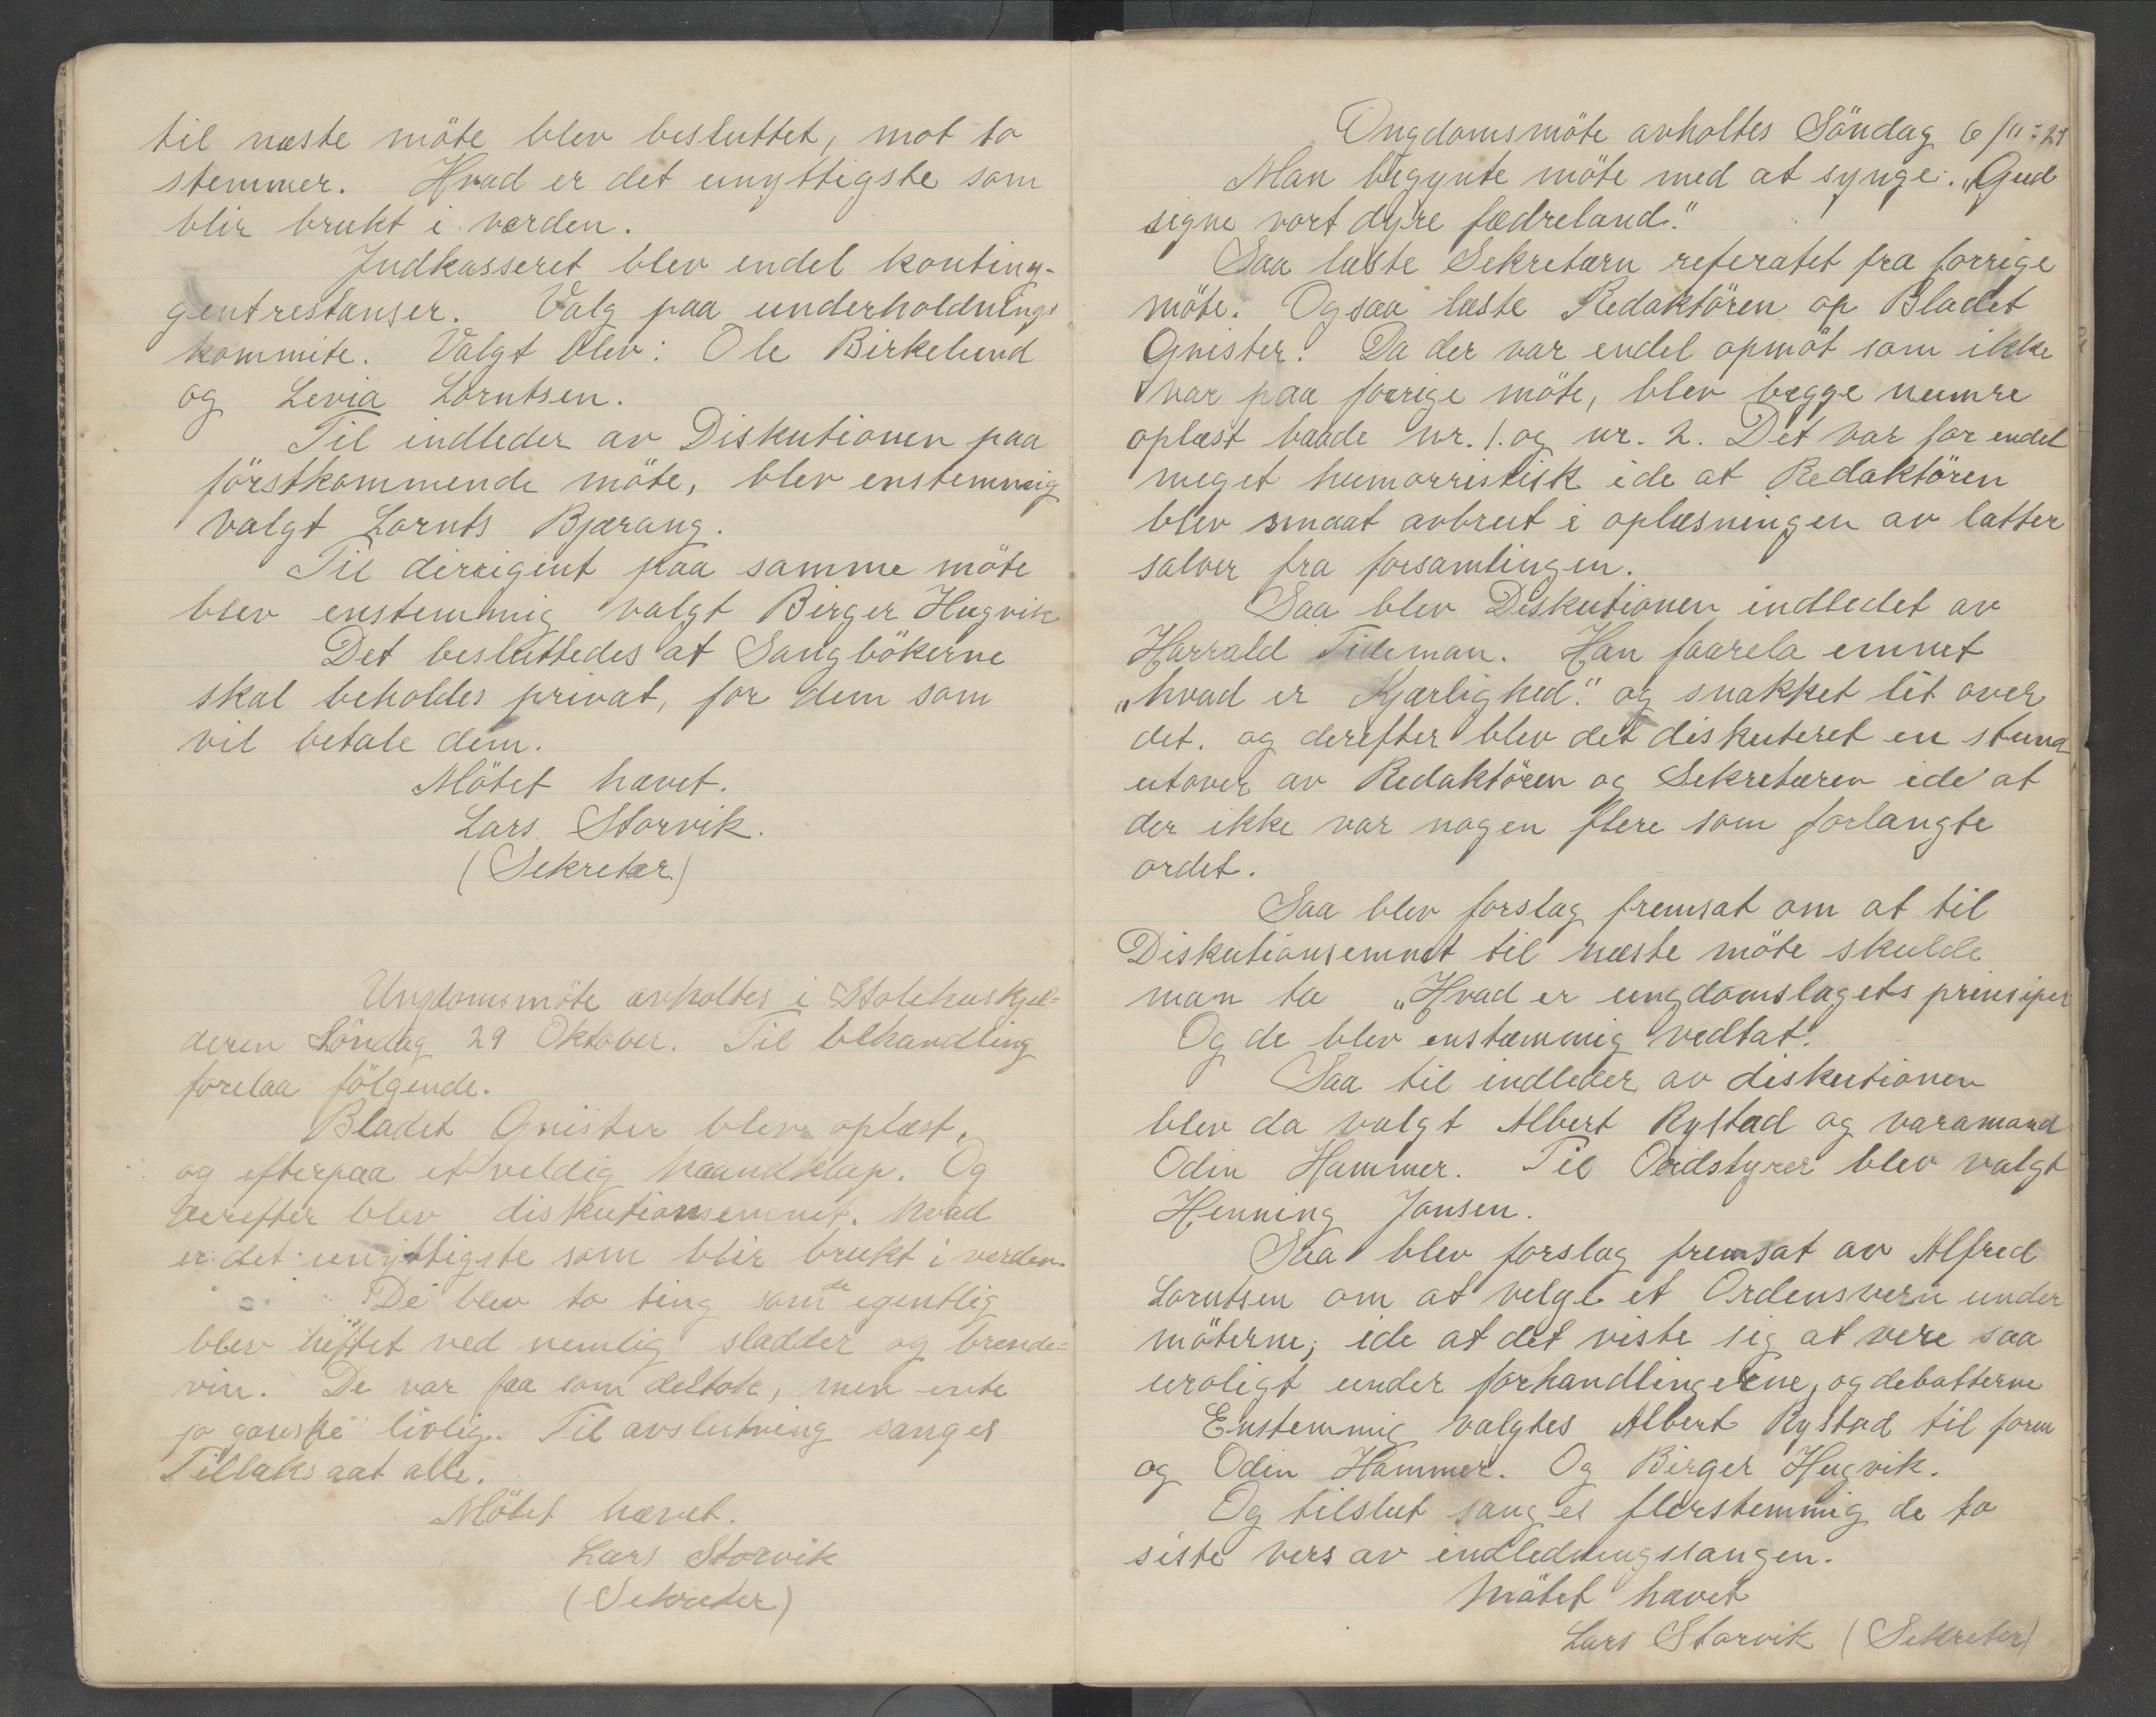 til næste möte blev besluttet, mot to
stemmer. Hvad er det unyttigste som
blir brukt i verden.
Indkasseret blev endel konting-
gentrestanser. Valg paa underholdnings
kommite. Valgt blev: Ole Birkelund
og Levia Lorntsen.
Til indleder av Diskutionen paa
förstkommende möte, blev enstemmig
valgt Lornts Bjærang.
Til dirrigent paa samme möte
blev enstemmig valgt Birger Hugvik
Det besluttedes at Sangbökerne
skal beholdes privat, for dem som
vil betale dem.
Mötet hævet.
Lars Storvik.
(Sekretær.)
Ungdomsmöte avholtes i Stolehuskjel=
deren Söndag 29 Oktober. Til behandling
forelaa fölgende.
Bladet Gnister blev oplæst,
og efterpaa et veldig haandklap. Og
derefter blev diskutionsemnet. hvad
er det unyttigste som blir brukt i verden.
De blev to ting som de egentlig
blev heftet ved nemlig sladder og brende=
vin. De var faa som deltok, men ente
jo ganske livlig. Til avslutning sanges
Tillaks aat alle.
Mötet hævet.
Lars Storvik
(Sekreter)
Ongdomsmöte avholtes Söndag 6/11-21
Man begynte möte med at synge. „Gud
signe vort dyre fædreland."
Saa læste Sekretærn referatet fra forrige
möte. Ogsaa læste Redaktören op Bladet
Gnister. Da der var endel opmöt som ikke
var paa forrige möte, blev begge numre
oplæst baade nr. 1. og nr. 2. Det var for endel
meget humorristisk ide at Redaktören
blev smaat avbrut i oplæsningen av latter
salver fra forsamlingen.
Saa blev Diskutionen indledet av
Harrald Tideman. Han faarela emnet
„hvad er Kjærlighed." og snakket lit over
det. og derefter blev det diskuteret en stund
utover av Redaktören og Sekretæren ide at
der ikke var nogen flere som forlangte
ordet.
Saa blev forslag fremsat om at til
Diskutionsemnet til næste möte skulde
man ta „Hvad er ungdomslagets prinsiper
Og de blev enstæmmig vedtat.
Saa til indleder av diskutionen
blev da valgt Albert Rystad og varamand
Odin Hammer. Til Ordstyrer blev valgt
Henning Jansen.
Saa blev forslag fremsat av Alfred
Lorntsen om at velge et Ordensvern under
möterne, ide at det viste sig at vere saa
uroligt under forhandlingerne, og debatterne
Enstemmig valgtes Albert Rystad til form
og Odin Hammer. Og Birger Hugvik.
Og tilslut sanges flerstemmig de to
siste vers av indledningssangen.
Mötet hævet
Lars Storvik (Sekreter)